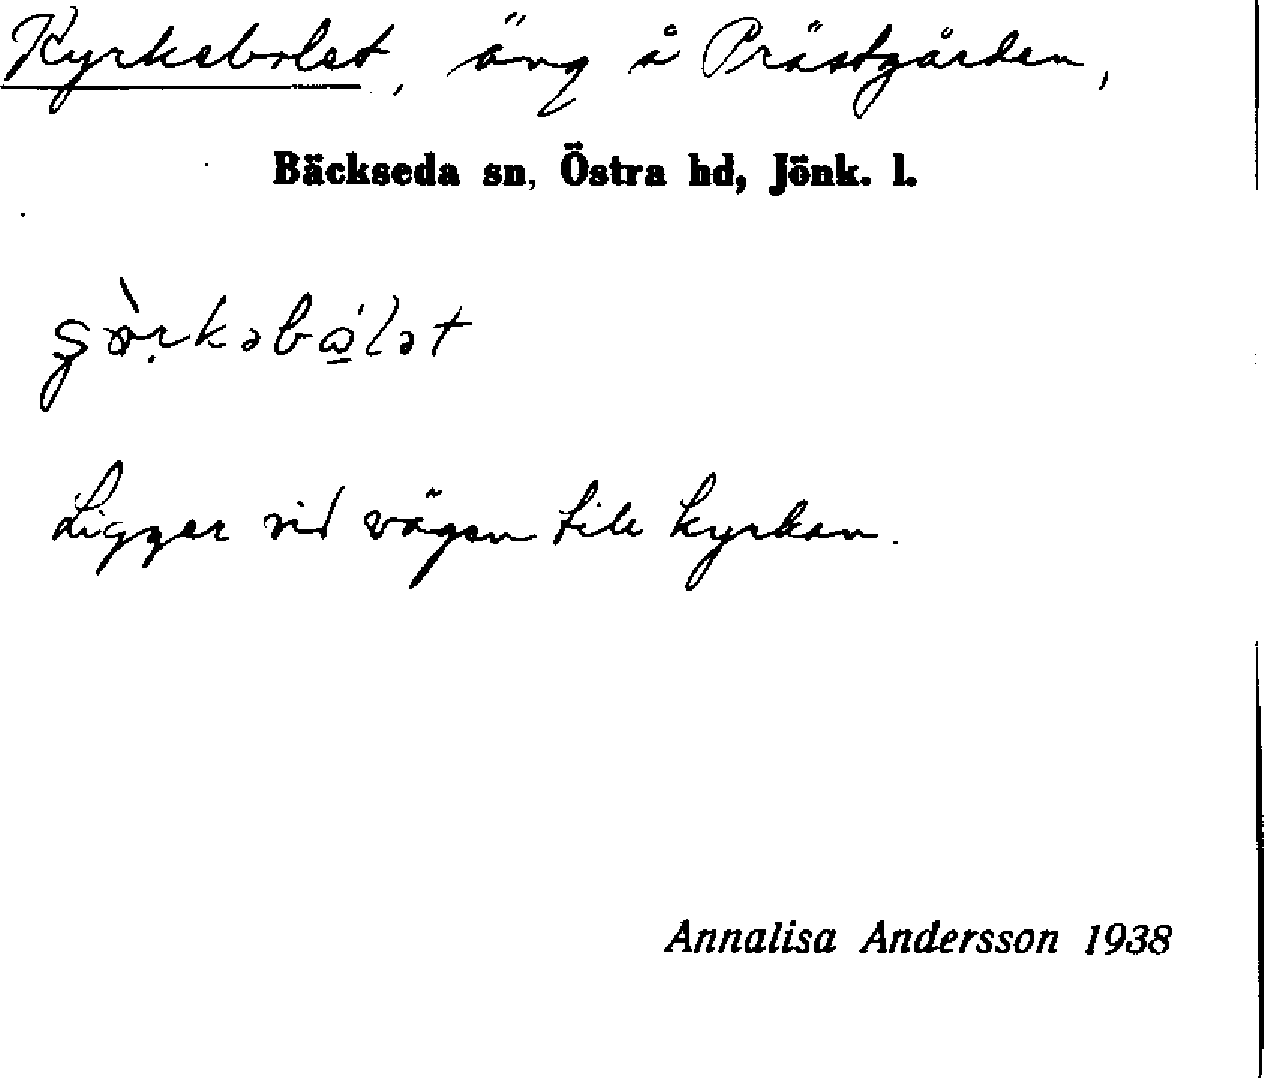 Kyrkebolet, äng å Prästgården,
Bäckseda sn, Östra hd, Jönk. l.
Ligger vid vägen till kyrkan.
Annalisa Andersson 1938